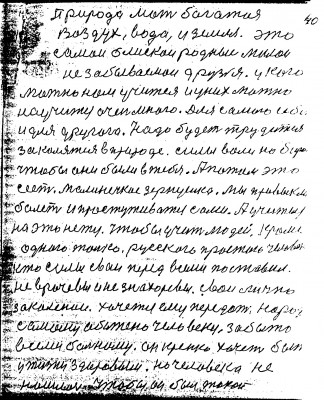 40
Природа мат богатая
воздух, вода, и земля. это
самои близкои родныи милои
незабываемои друзья. у кого
можно нам учится и у них можно
научится очен много. Для самого себя
и для другого. Надо будет трудится
закалятся в природе. силы воли но
чтобы они были в тебя. А потом это
сеет. маленькие зернушка. Мы привыкли
болет и простуживатся сами. А учителя
на это нету. чтобы учит людей. кроме
одного только, русского простого человека
кто силы свои перед всеми поставил.
не врачевы и не знахоревы. свои личны
закалении. хочет ему передат. народ
самому обижено человеку. забыто
всеми болному. он крепко хочет быт
у жизни здоровым. но человека не
нашлос. чтобы он был такои